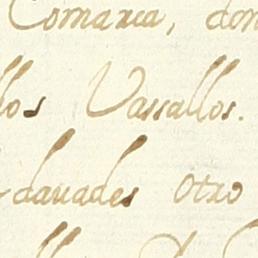 Comarca, don
llos Vassallos.
dauades Otro